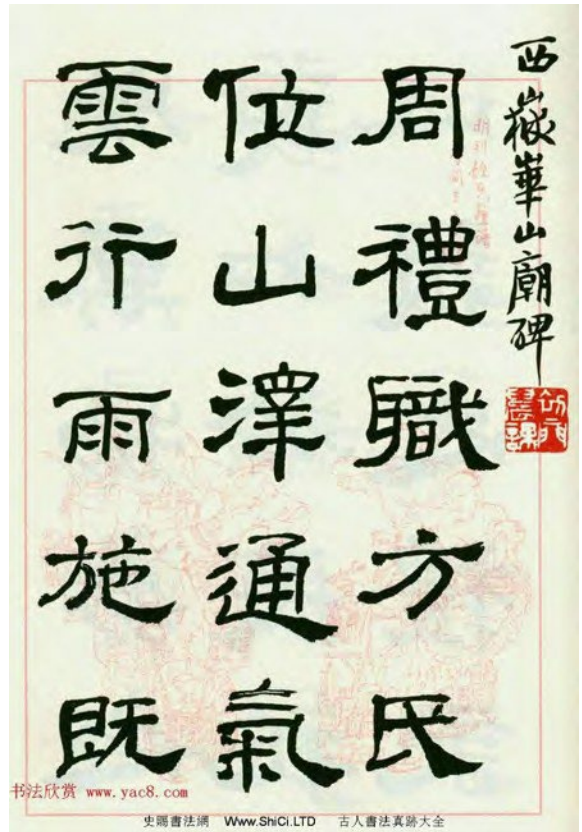 西嶽華山廟碑
周禮職方氏
位山澤通氣
雲行雨施既
书法欣赏 www.yac8.com
史賜書法網 Www.ShiCi.LTD 古人書法真跡大全